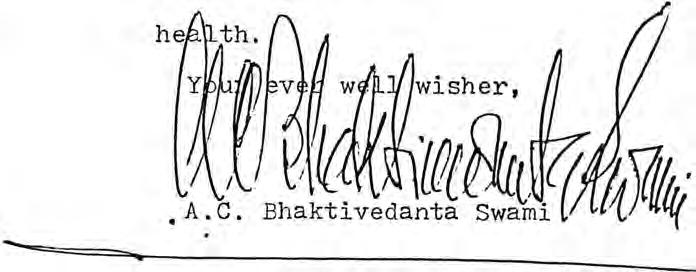 health.
Your ever well wisher,
A C Bhaktivedanta Swami
A.C. Bhaktivedanta Swami